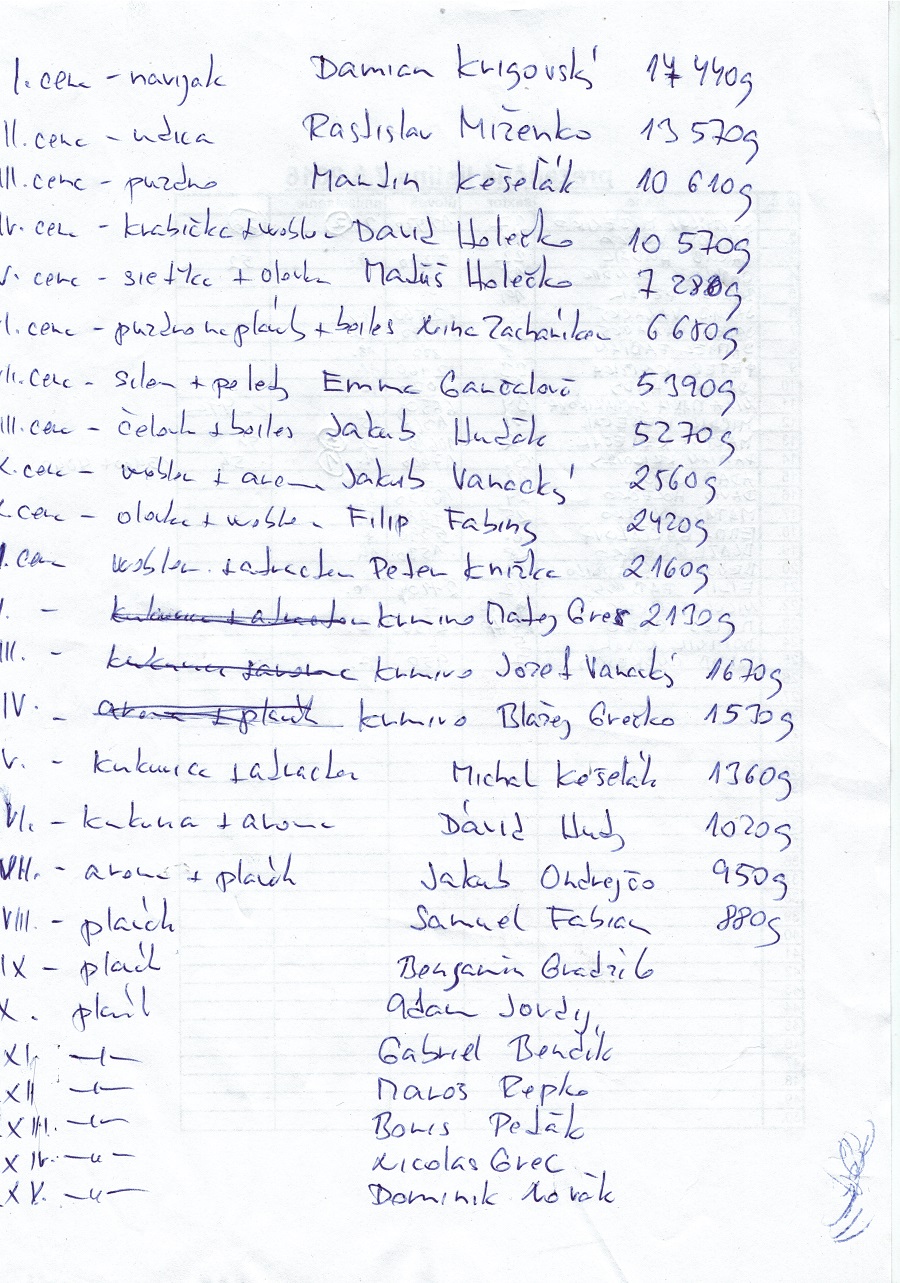 I. cena - navijak Damian Krigovský 14 440g
II. cena - udica Rastislav Miženko 13 570g
III. cena - puzdro Martin Kešelák 10 610g
IV. cena - krabička + wobler David Holečko 10 570g
V. cena - sieťka + olovka Matúš Holečko 7 280g
I. cena - puzdro na plavák + boiles Nina 6 680g
II. cena - silon + pelety Emma 5390g
III. cena - čelovk + boiles Jakub Hudák 5270g
X. cena - wobler + aroma Jakub Vanacký 2560g
X. cena - olovka + wobler Filip Fabing 2420g
I. cena wobler + atractor Peter Knižka 2160g
I. - krmivo Matej Grec 2130g
III. - krmivo Jozef Vanacký 1670g
IV. - krmivo Blažej Grečko 1530g
V. - kukurica + atractor Michal Kešelák 1360g
VI. - kukurica + aroma Dávid Hudý 1020g
VII. - aroma + plavák Jakub Ondrejčo 950g
VIII. - plavák Samuel Fabian 880g
IX - plavák Benjamin
X. plavák Adam Jordy
XI. -"- Gabriel Bendík
XII -"- Maroš Repko
XIII. -"- Boris Peťák
XIV. -"- Nicolas Grec
XV. -"- Dominik Novák